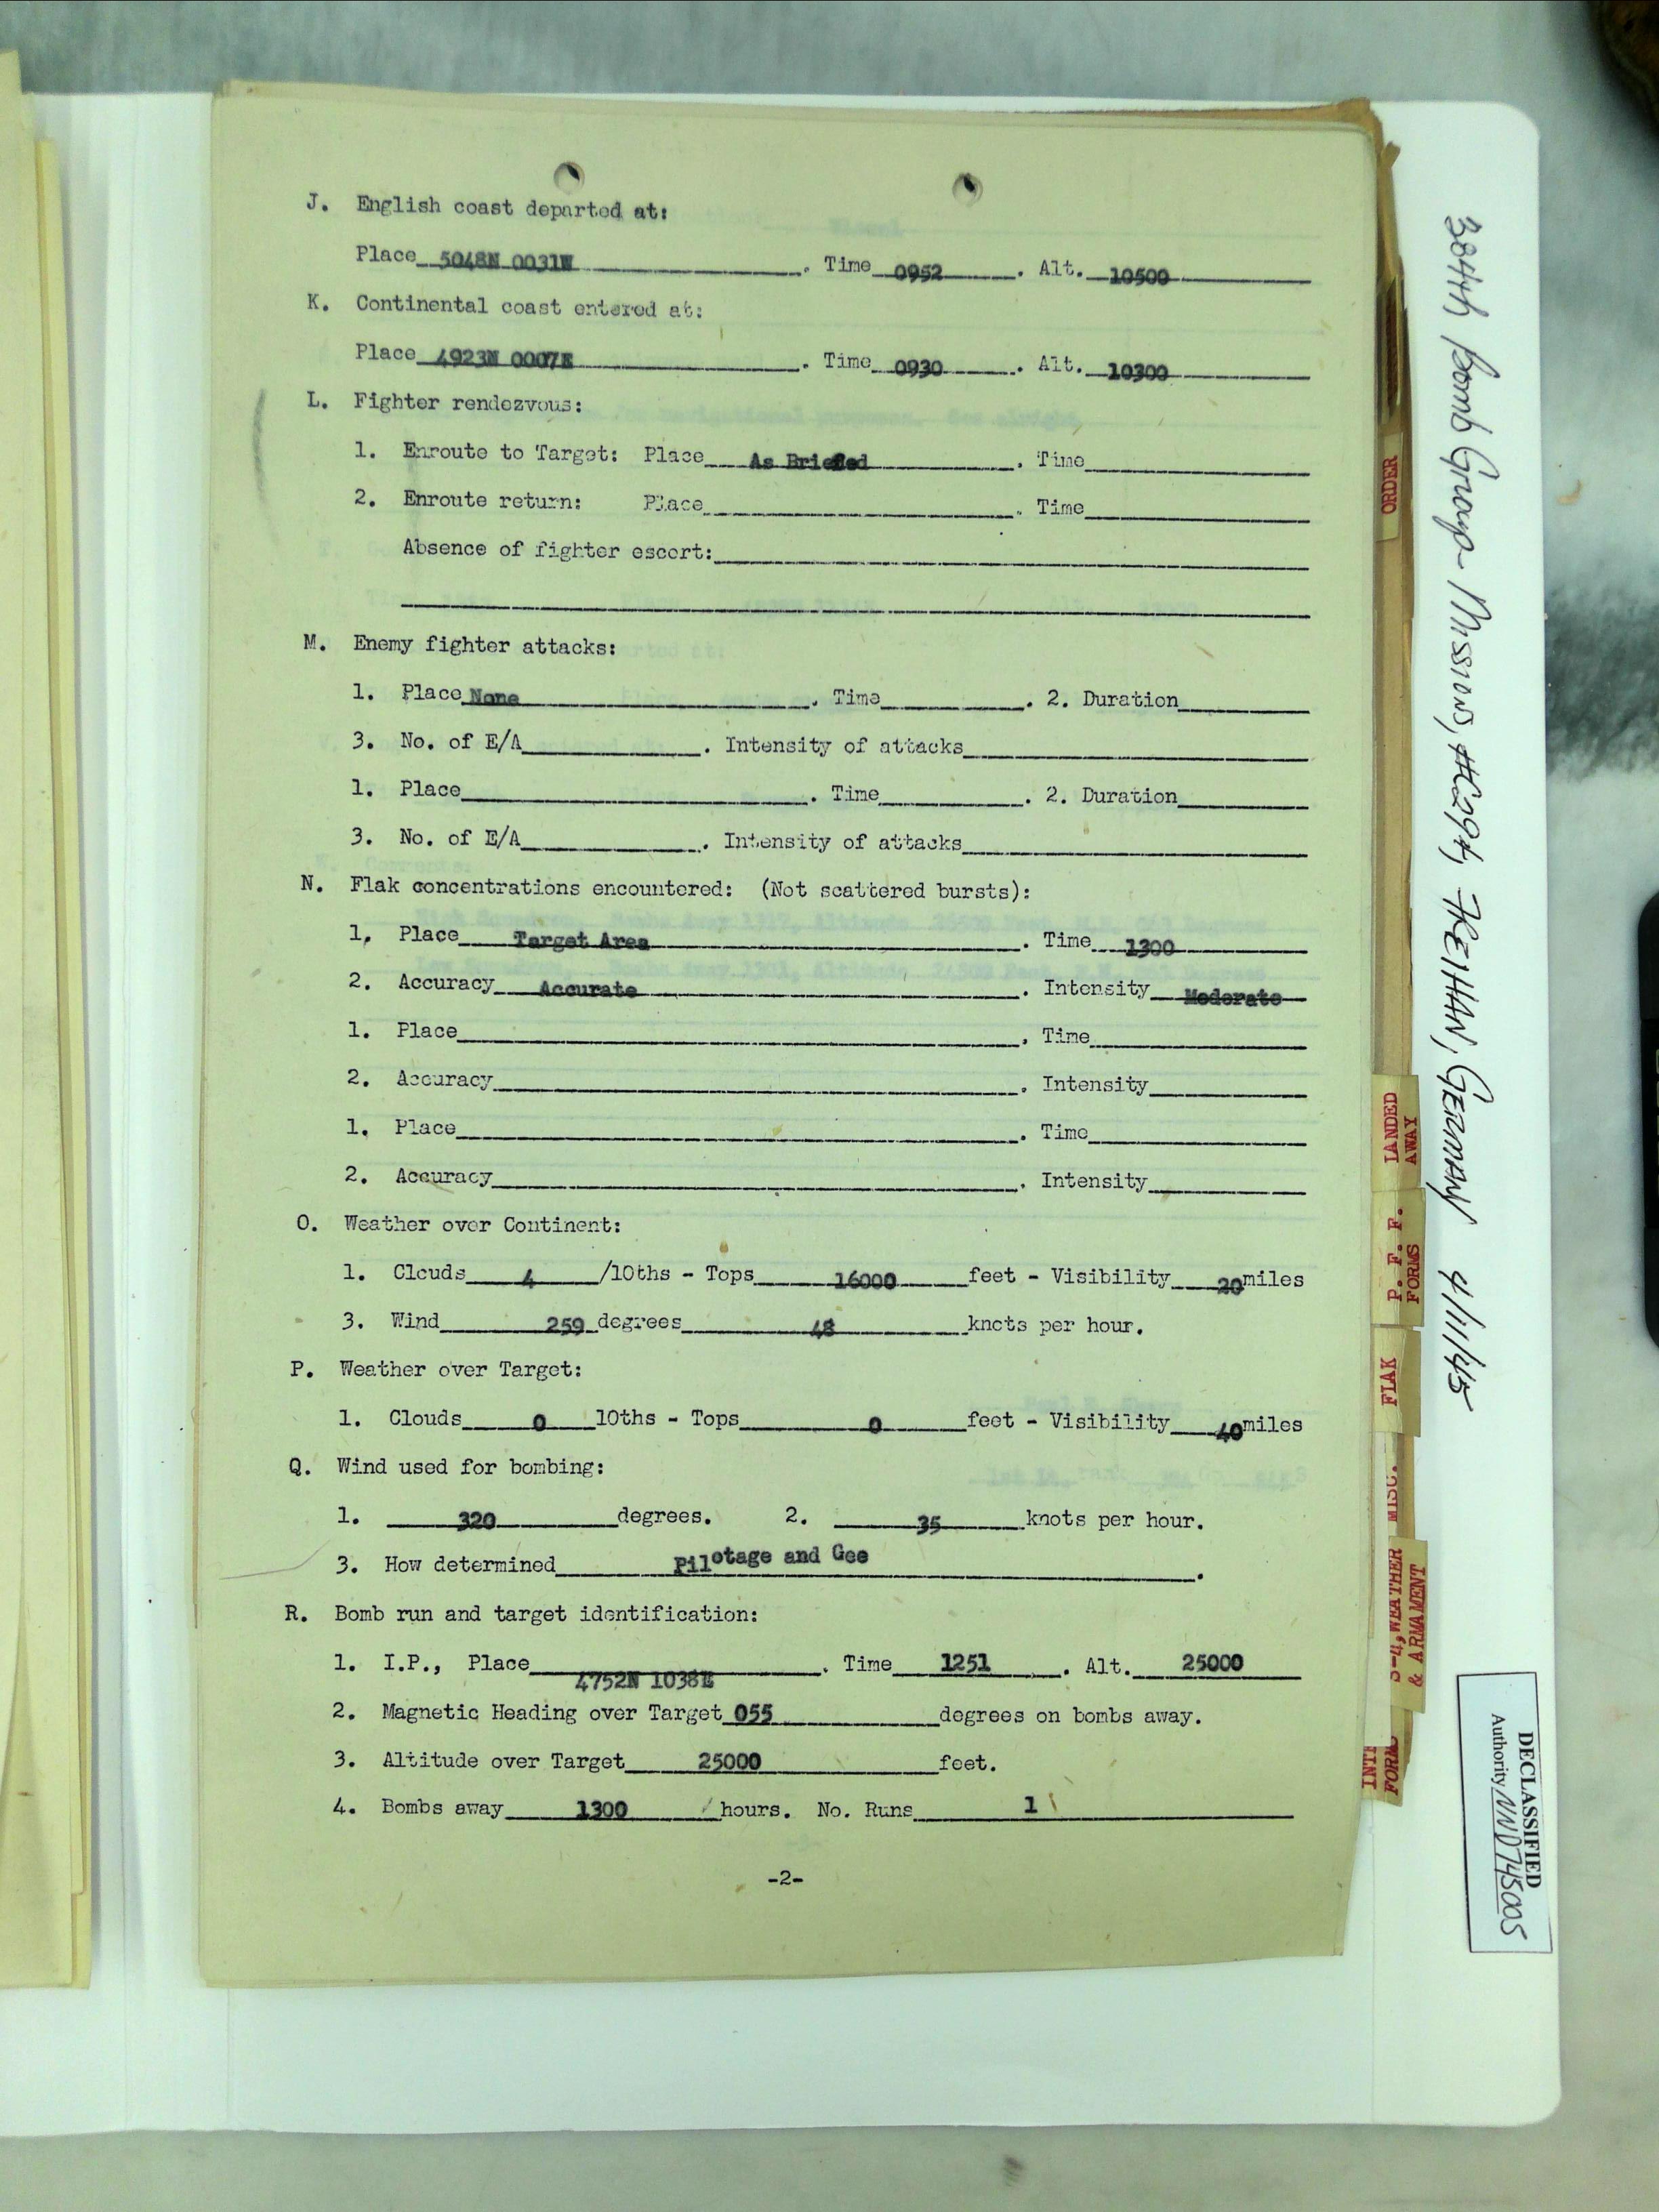 J. English coast departed at:
Place 5048N 0031W. Time 0952. Alt. 10500
K. Continental coast entered at:
Place 4923N 0007E. Time 0930. Alt. 10300
L. Fighter rendezvous:
1. Enroute to Target: Place As Briefed. Time
2. Enroute return: Place. Time
Absence of fighter escort:
M. Enemy fighter attacks:
1. Place None. Time. 2. Duration
3. No. of E/A. Intensity of attacks
1. Place. Time. 2. Duration
3. No. of E/A. Intensity of attacks
N. Flak concentrations encountered: (Not scattered bursts):
1. Place Target Area. Time 1300
2. Accuracy Accurate. Intensity Moderate
1. Place. Time
2. Accuracy. Intensity
1. Place. Time
2. Accuracy. Intensity
O. Weather over Continent:
1. Clouds 4 /10ths - Tops 16000 feet - Visibility 20 miles
3. Wind 259 degrees 48 knots per hour.
P. Weather over Target:
1. Clouds 0 10ths - Tops 0 feet - Visibility 40 miles
Q. Wind used for bombing:
1. 320 degrees. 2. 35 knots per hour.
3. How determined Pilotage and Gee.
R. Bomb run and target identification:
1. I.P., Place 4752N 1038E. Time 1251. Alt. 25000
2. Magnetic Heading over Target 055 degrees on bombs away.
3. Altitude over Target 25000 feet.
4. Bombs away 1300 hours. No. Runs 1
-2-
ORDER
LANDED
AWAY
P. F. F.
FORMS
FLAK
MISC.
S-4, WEATHER
& ARMAMENT
FORMS
384th Bomb Group Missions, #294, GERMANY 4/11/45
DECLASSIFIED
Authority NND745005